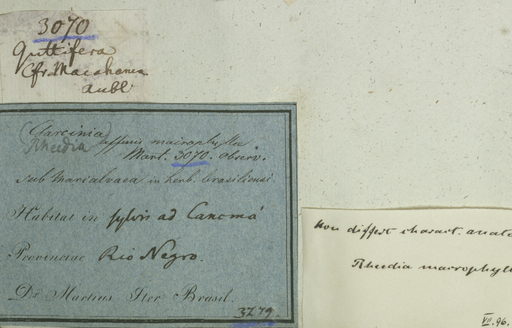 3070
Guttifera
Cfr. Macahanea
Aubl
(Garcinia)
Rheedia affinis macrophylla
Mart. 3070. observ.
sub Marialvaea in herb. brasiliensi
Habitat in sylvis ad Canomá
Provinciae Rio Negro.
Dr. Martius Iter Brasil.
3279
Non differt charact. anato
Rheedia macrophyll
VII. 96.